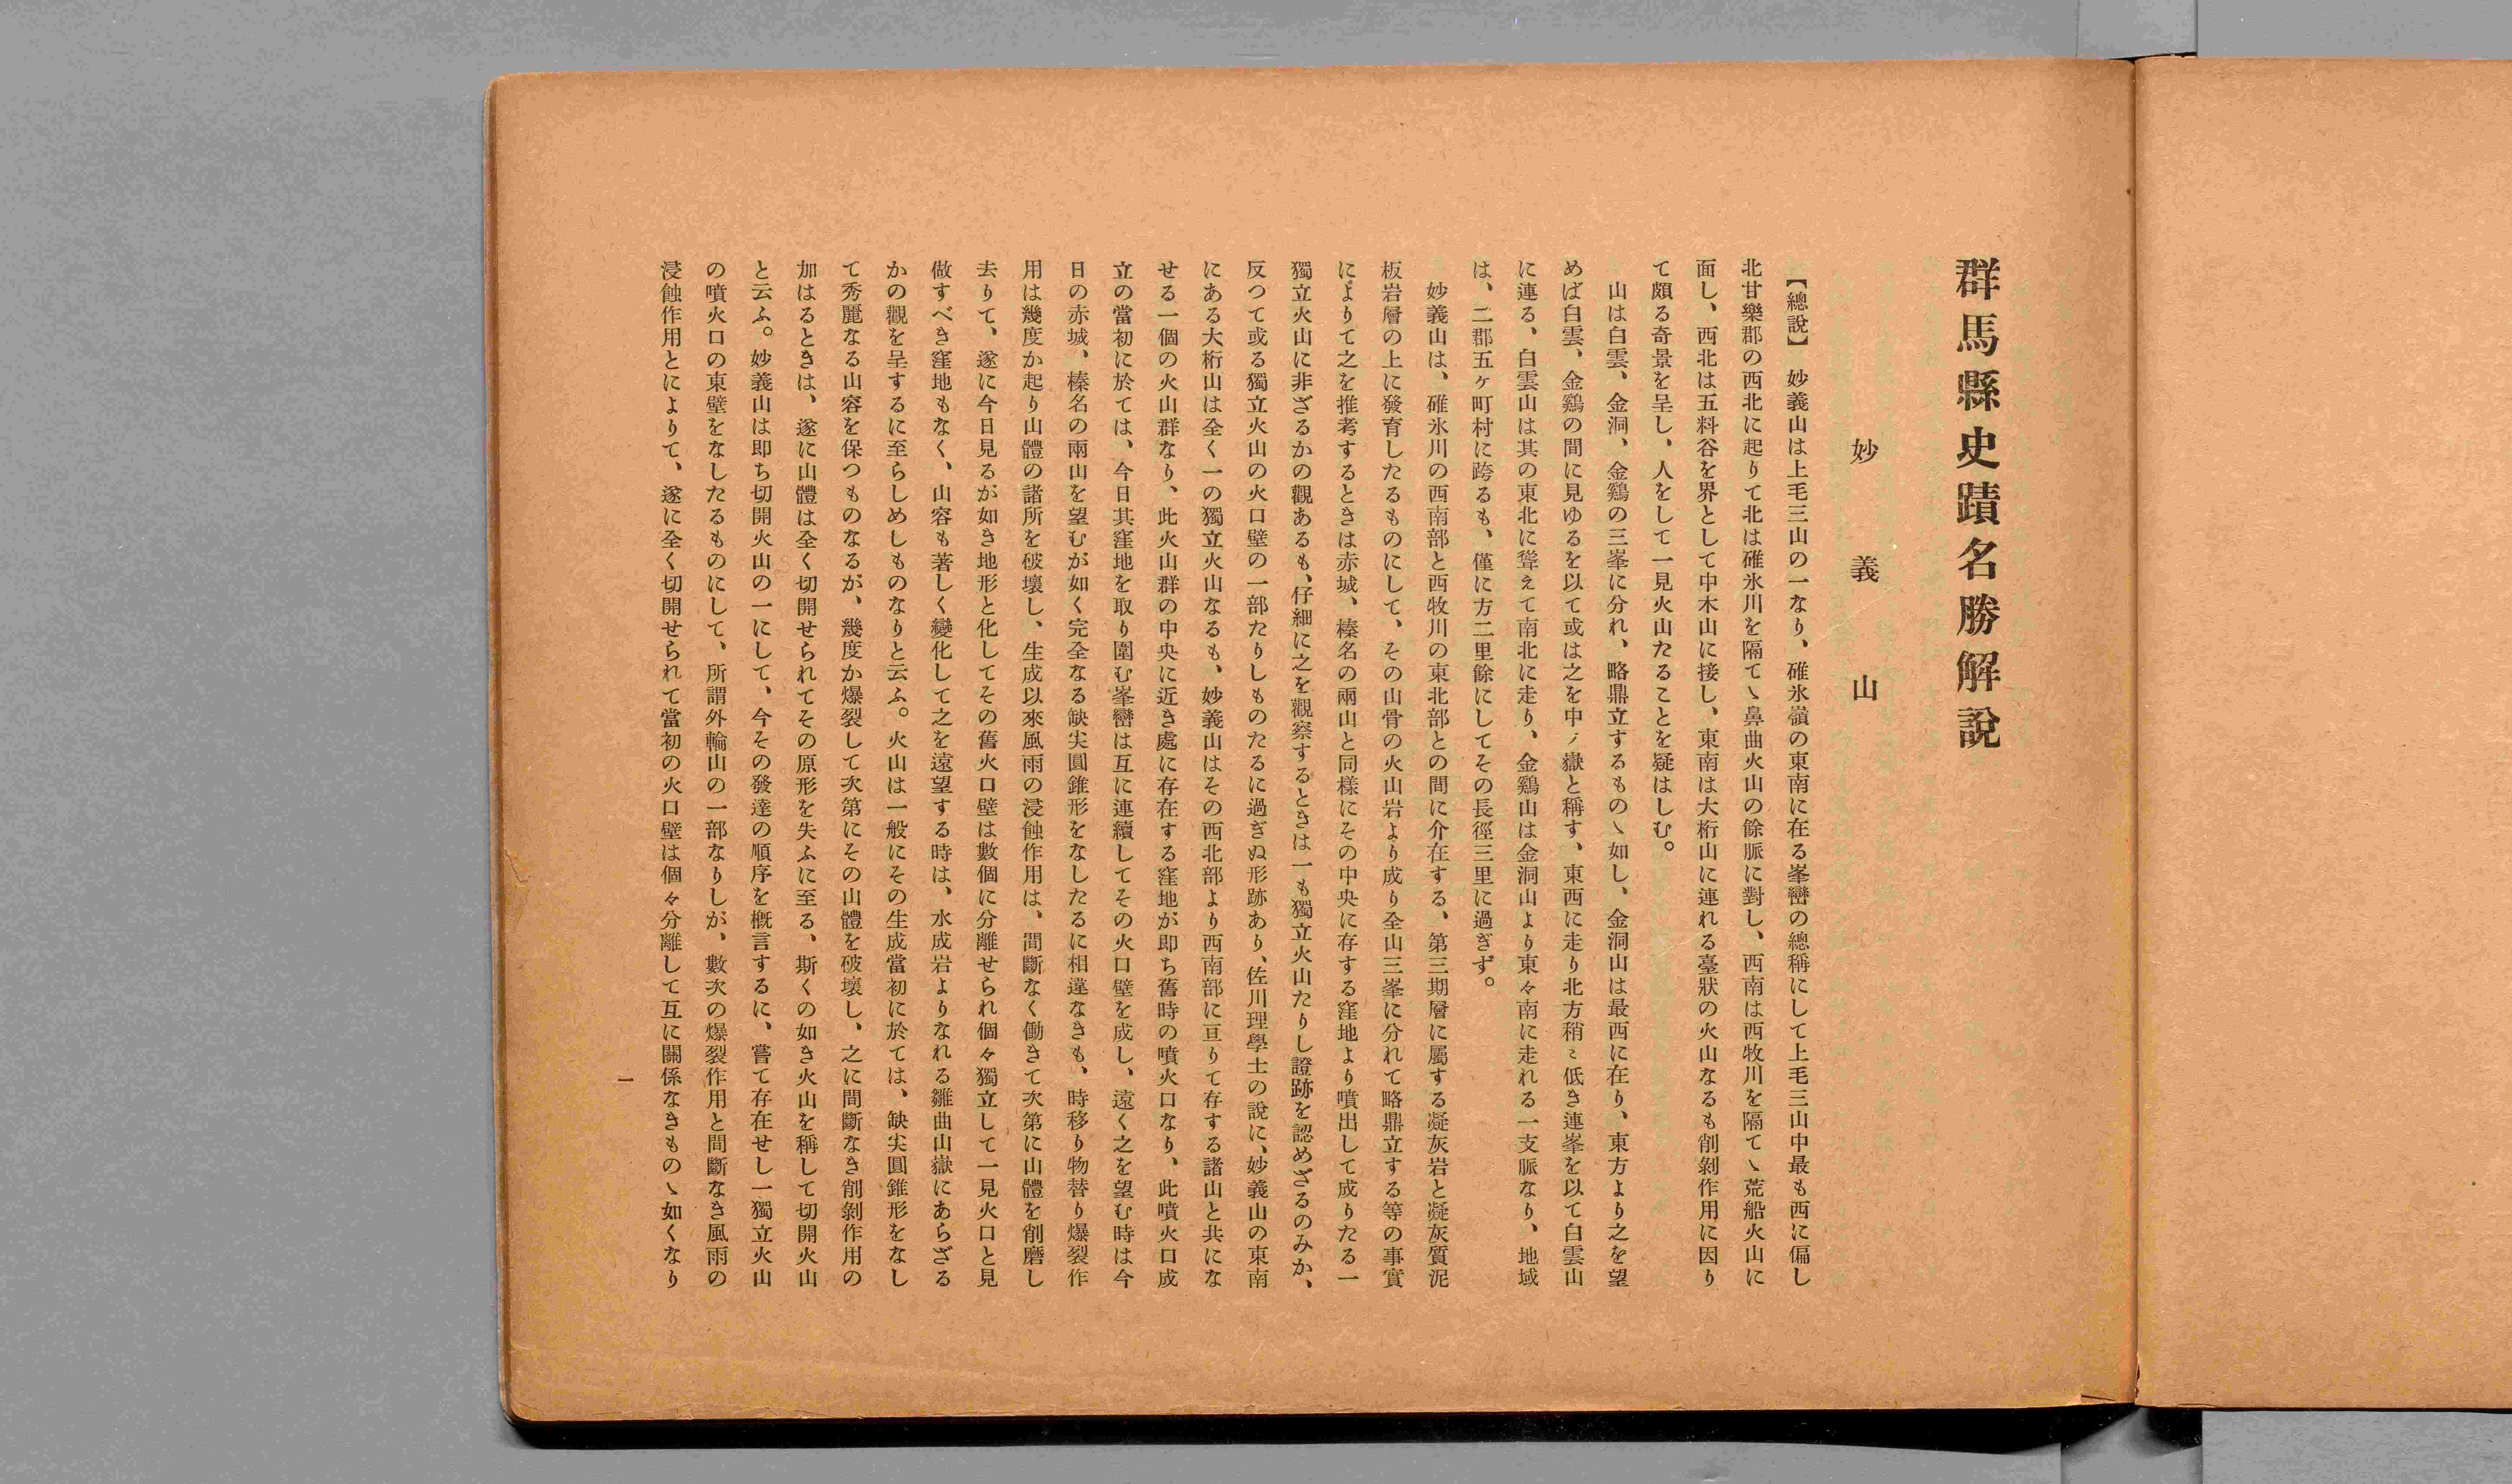 群馬縣史蹟名勝解說
妙義山
【總說】　妙義山は上毛三山の一なり、碓氷嶺の東南に在る峯巒の總稱にして上毛三山中最も西に偏し
北甘樂郡の西北に起りて北は碓氷川を隔てヽ鼻曲火山の餘脈に對し、西南は西牧川を隔てヽ荒船火山に
面し、西北は五料谷を界として中木山に接し、東南は大桁山に連れる臺狀の火山なるも削剝作用に因り
て頗る奇景を呈し、人をして一見火山たることを疑はしむ。
山は白雲、金洞、金鷄の三峯に分れ、略鼎立するものヽ如し、金洞山は最西に在り、東方より之を望
めば白雲、金鷄の間に見ゆるを以て或は之を中ノ嶽と稱す、東西に走り北方稍〻低き連峯を以て白雲山
に連る、白雲山は其の東北に聳えて南北に走り、金鷄山は金洞山より東々南に走れる一支脈なり、地域
は、二郡五ヶ町村に跨るも、僅に方二里餘にしてその長徑三里に過ぎず。
妙義山は、碓氷川の西南部と西牧川の東北部との間に介在する、第三期層に屬する凝灰岩と凝灰質泥
板岩層の上に發育したるものにして、その山骨の火山岩より成り全山三峯に分れて略鼎立する等の事實
によりて之を推考するときは赤城、榛名の兩山と同樣にその中央に存する窪地より噴出して成りたる一
獨立火山に非ざるかの觀あるも、仔細に之を觀察するときは一も獨立火山たりし證跡を認めざるのみか、
反つて或る獨立火山の火口壁の一部たりしものたるに過ぎぬ形跡あり、佐川理學士の說に、妙義山の東南
にある大桁山は全く一の獨立火山なるも、妙義山はその西北部より西南部に亘りて存する諸山と共にな
せる一個の火山群なり、此火山群の中央に近き處に存在する窪地が卽ち舊時の噴火口なり、此噴火口成
立の當初に於ては、今日其窪地を取り圍む峯巒は互に連續してその火口壁を成し、遠く之を望む時は今
日の赤城、榛名の兩山を望むが如く完全なる缺尖圓錐形をなしたるに相違なきも、時移り物替り爆裂作
用は幾度か起り山體の諸所を破壞し、生成以來風雨の浸蝕作用は、間斷なく働きて次第に山體を削磨し
去りて、遂に今日見るが如き地形と化してその舊火口壁は數個に分離せられ個々獨立して一見火口と見
做すべき窪地もなく、山容も著しく變化して之を遠望する時は、水成岩よりなれる雛曲山嶽にあらざる
かの觀を呈するに至らしめしものなりと云ふ。火山は一般にその生成當初に於ては、缺尖圓錐形をなし
て秀麗なる山容を保つものなるが、幾度か爆裂して次第にその山體を破壞し、之に間斷なき削剝作用の
加はるときは、遂に山體は全く切開せられてその原形を失ふに至る、斯くの如き火山を稱して切開火山
と云ふ。妙義山は卽ち切開火山の一にして、今その發達の順序を槪言するに、嘗て存在せし一獨立火山
の噴火口の東壁をなしたるものにして、所謂外輪山の一部なりしが、數次の爆裂作用と間斷なき風雨の
浸蝕作用とによりて、遂に全く切開せられて當初の火口壁は個々分離して互に關係なきものヽ如くなり
一